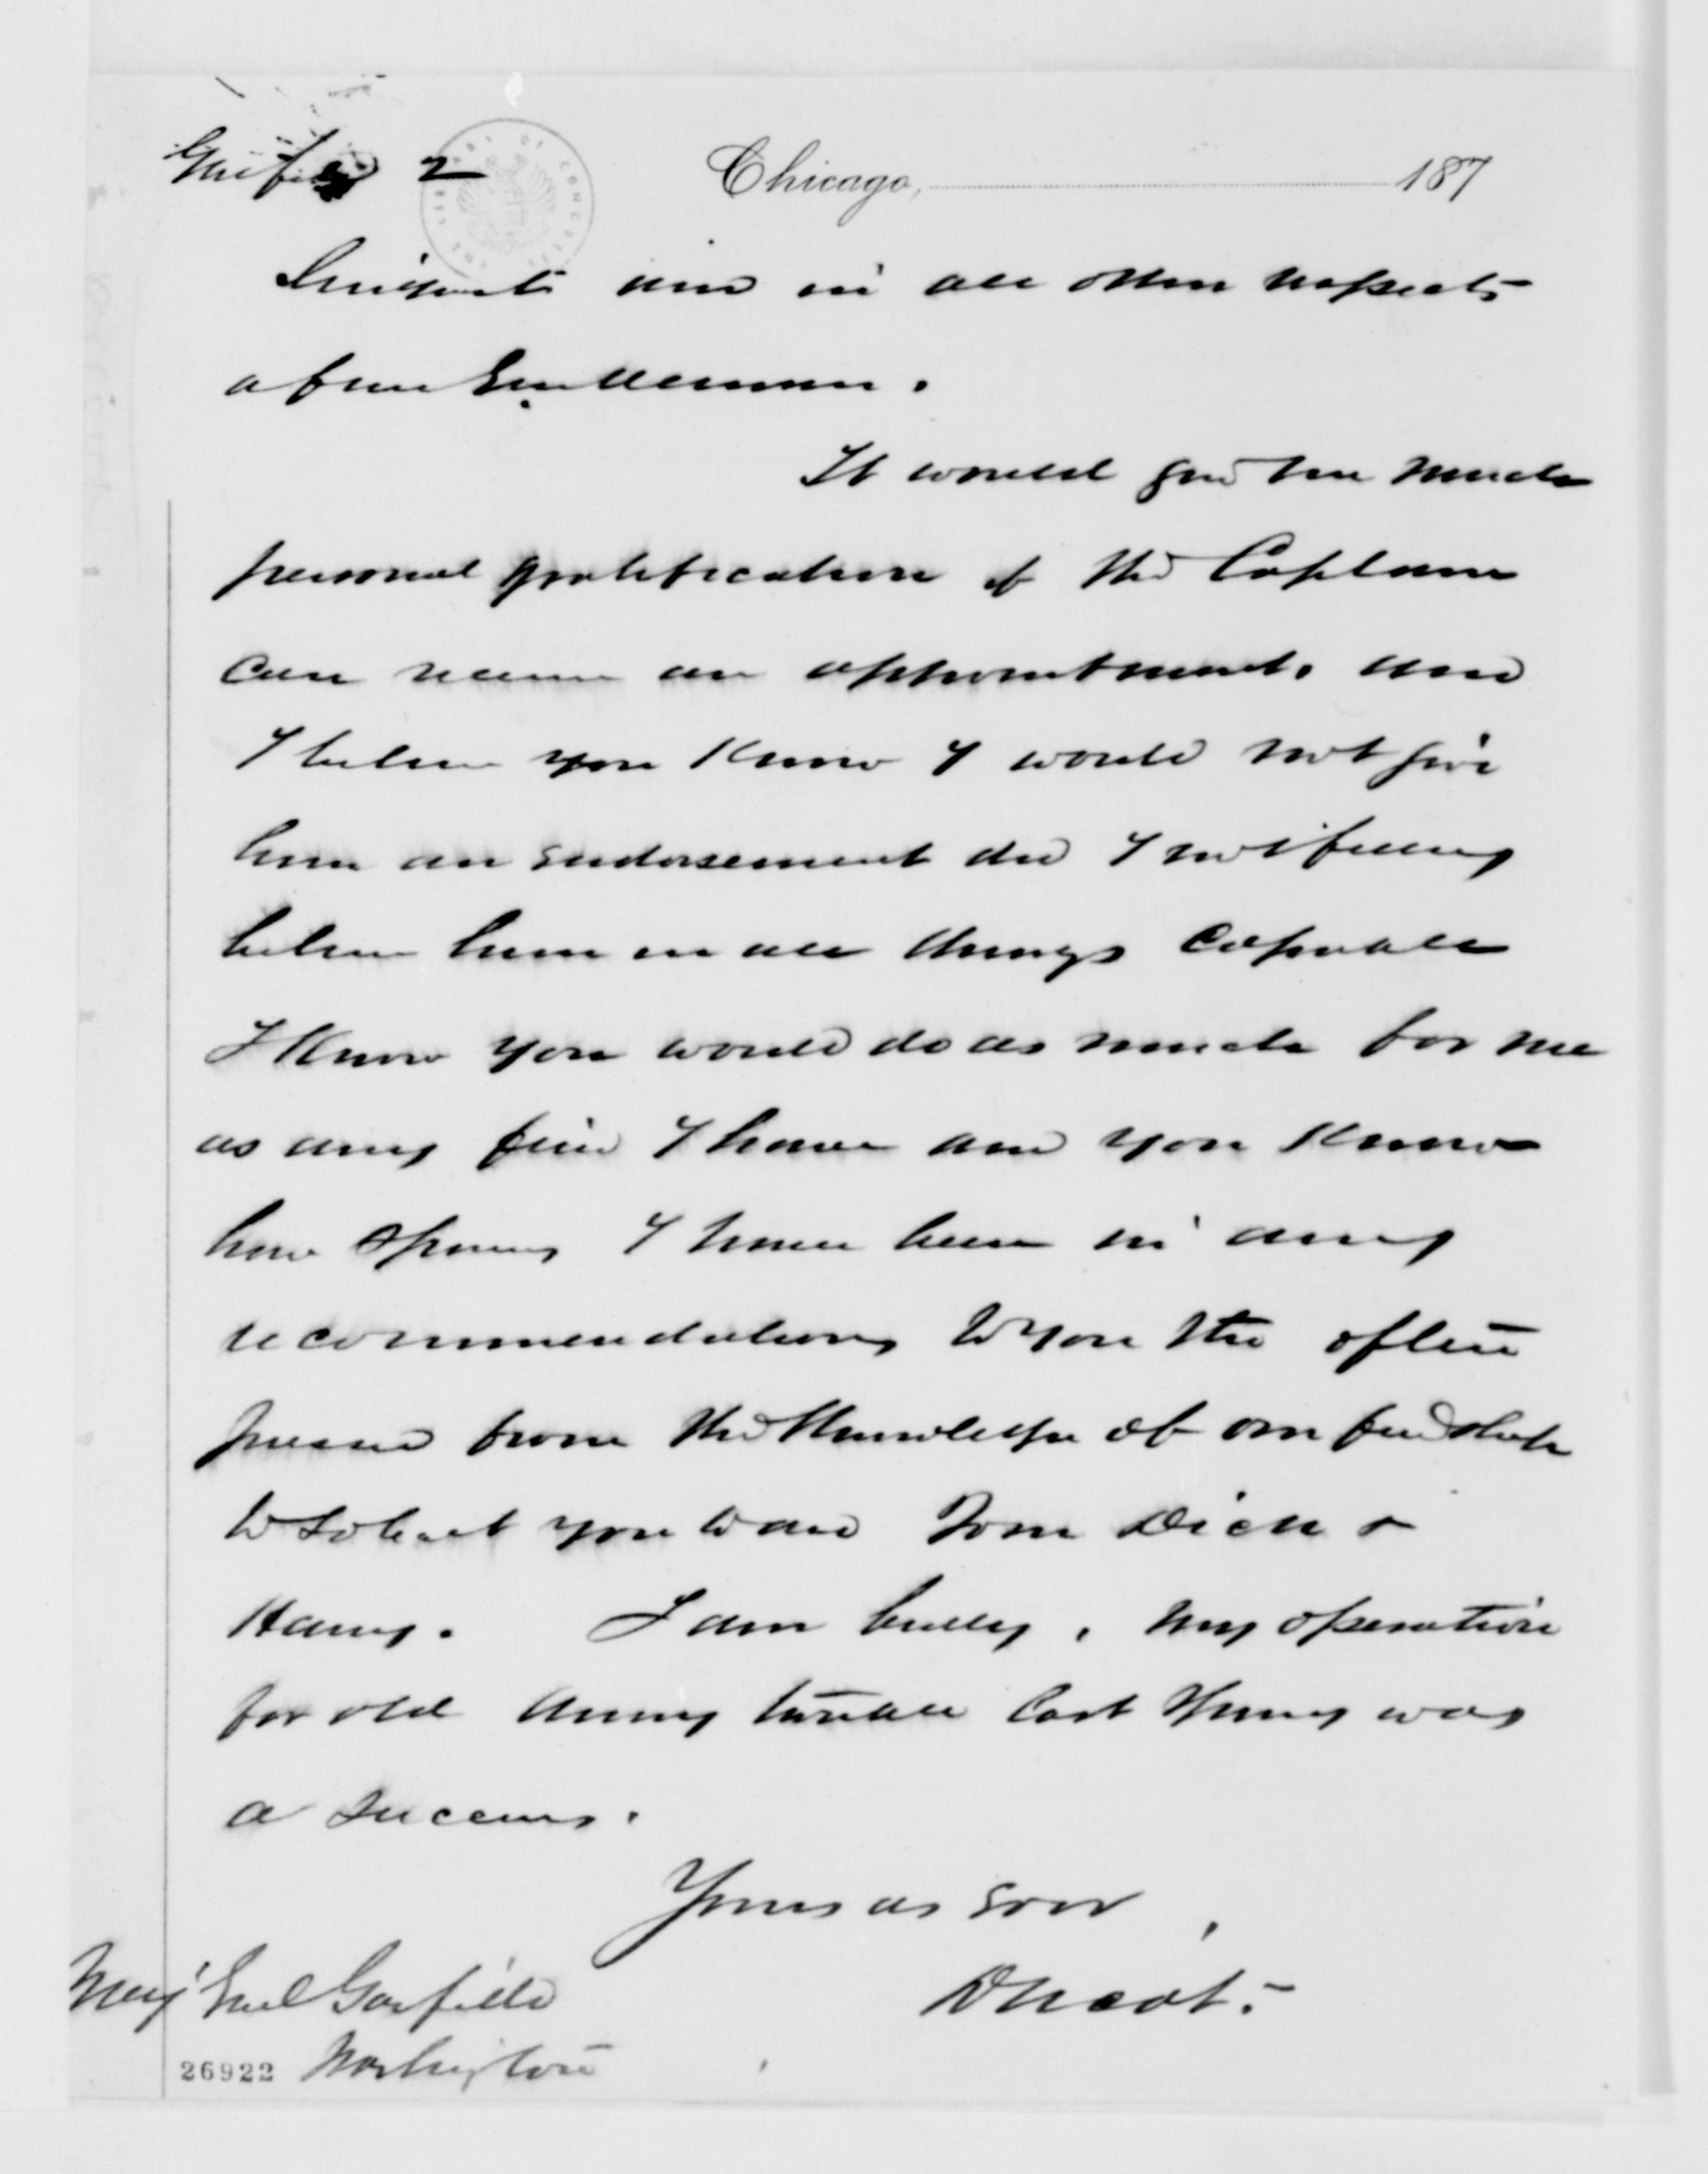 Garfield 2 Chicago, 187
and in all other respects
a fine Gentleman.
It would give me much
personal gratification if the Captain
can receive an appointment. and
I believe you know I would not give
him an endorsement did I not fully
believe him in all things capable
I know you would do as much for me
as any friend I have and you know
how sparing I have been in any
recommendations to you tho often
pressed from the knowledge of our friendship
to solicit you to aid Tom Dick &
Harry. I am bully. my operation
for old Army trouble last Spring was
a success.
Yours as ever,
Ducat.
Maj Genl Garfield
26922 Washington